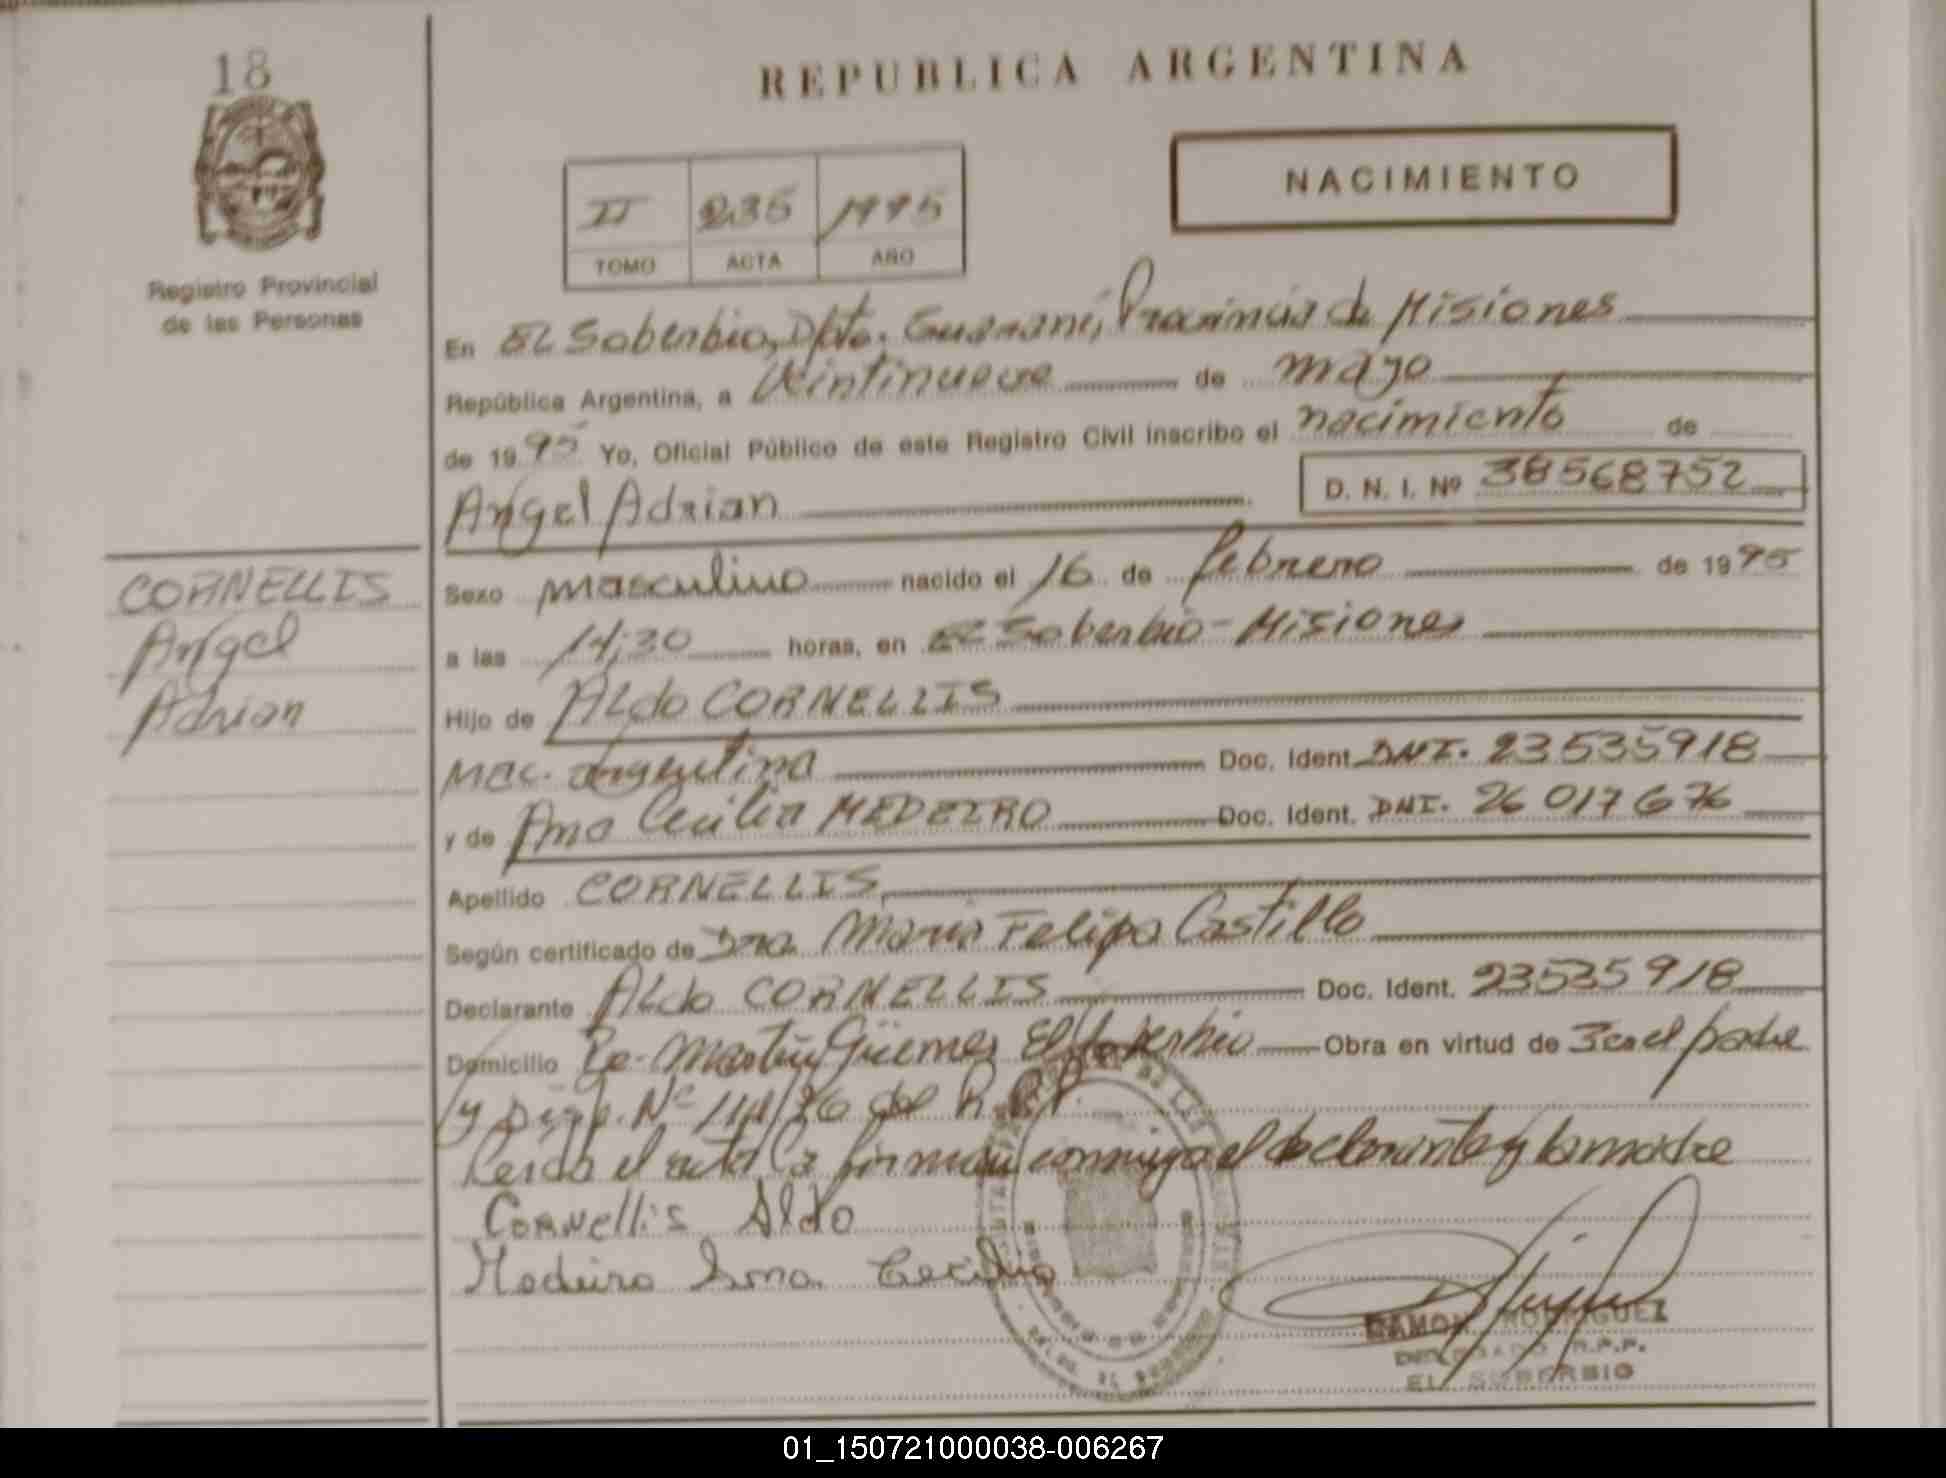 18
Registro Provincial
de las Personas
REPUBLICA ARGENTINA
NACIMIENTO
II 235 1995
TOMO ACTA AÑO
En El Soberbio, Dpto. Guaraní, Provincia de Misiones
República Argentina, a Veintinueve de mayo
de 1995 Yo, Oficial Público de este Registro Civil inscribo el nacimiento de
Angel Adrian D. N. I. Nº 38568752
CORNELLIS
Angel
Adrian
Sexo masculino nacido el 16 de febrero de 1995
a las 14;30 horas, en El Soberbio - Misiones
Hijo de Aldo CORNELLIS
Nac. argentina Doc. Ident. DNI. 23535918
y de Ana Cecilia MEDEIRO Doc. Ident. DNI. 26 017 676
Apellido CORNELLIS
Según certificado de Dra. Maria Felipa Castillo
Declarante Aldo CORNELLIS Doc. Ident. 23535918
Domicilio Martin Güemes El Soberbio Obra en virtud de Ser el padre
y Disp. Nº
Leida el acta la firman conmigo el declarante y la madre
Cornellis Aldo
Medeiro Ana Cecilia
RAMON RODRIGUEZ
DELEGADO R.P.P.
EL SOBERBIO
01_150721000038-006267